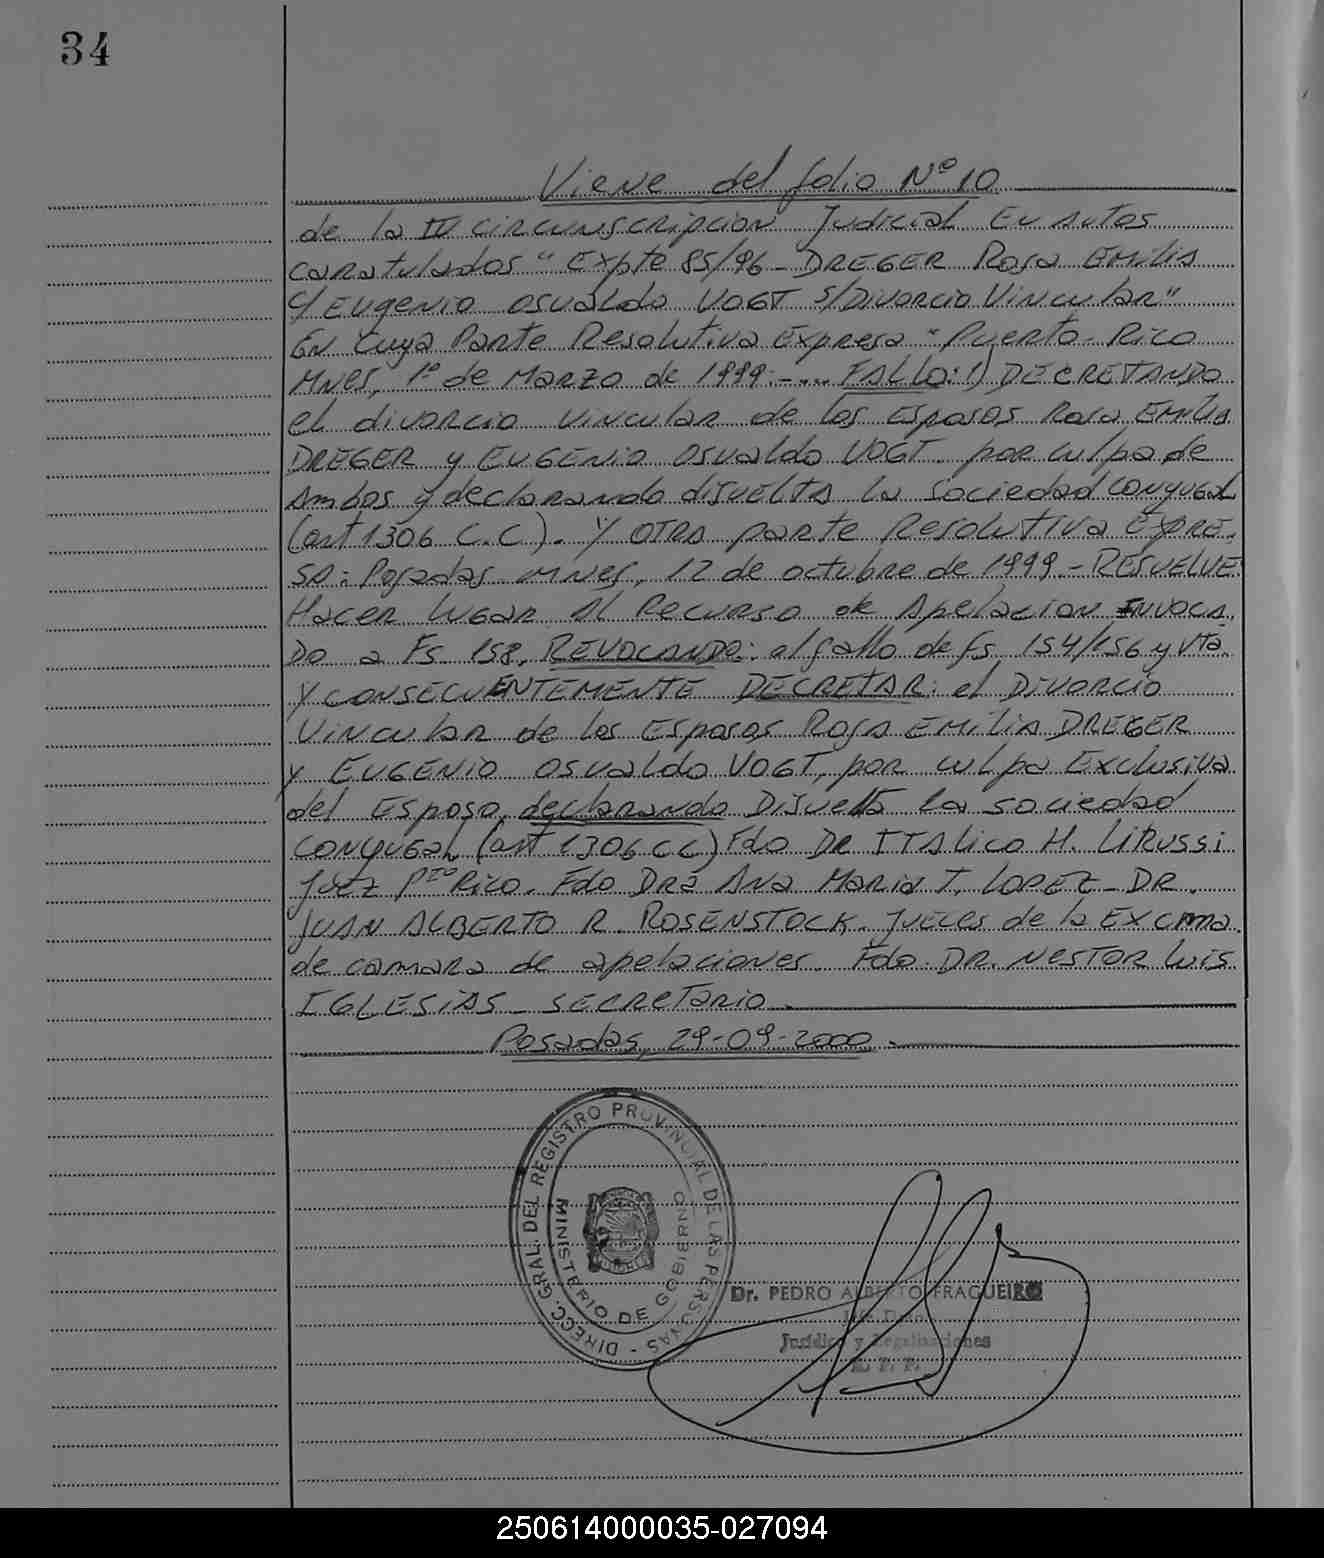 34
Viene del folio Nº 10
de la IV circunscripcion Judicial En autos
caratulados "Expte 85/96 - DREGER Rosa EMilia
c/ EUgenio osvaldo VOGT s/Divorcio Vincular"
En cuya Parte Resolutiva Expresa "Puerto Rico
Mnes, 1º de Marzo de 1999.-... FALLO: 1) DECRETANDO
el divorcio vincular de los esposos Rosa EMilia
DREGER y EUGENio osvaldo VOGT por culpa de
Ambos y declarando disuelta la sociedad conyugal
(art 1306 C.C). Y OTRA parte Resolutiva EXPRE
SA: Posadas Mnes, 12 de octubre de 1999.- RESUELVE:
Hacer lugar Al Recurso de Apelacion INVOCA
DO a Fs 158, REVOCANDO: el fallo de fs 154/156 y vta.
Y CONSECUENTEMENTE DECRETAR: el Divorcio
Vincular de los Esposos Rosa EMiliA DREGER
y EUGENIO osvaldo VOGT, por culpa Exclusiva
del Esposo, declarando Disuelta la sociedad
conyugal (art 1306 CC) Fdo DR ITAlico H. LiRussi
Juez Pto Rico. Fdo Dra Ana Maria T. LOPEZ - DR.
JUAN ALBERTO R. ROSENSTOCK. Jueces de la Excma.
de camara de apelaciones. Fdo. DR. NESTOR Luis
IGLESiAS - secretario.
Posadas, 29-09-2000.
DIRECC. GRAL. DEL REGISTRO PROVINCIAL DE LAS PERSONAS -
MINISTERIO DE GOBIERNO
Dr. PEDRO ALBERTO FRAGUEIRO
Jefe Dpto.
Jurídico y Legalizaciones
R. P. P.
250614000035-027094